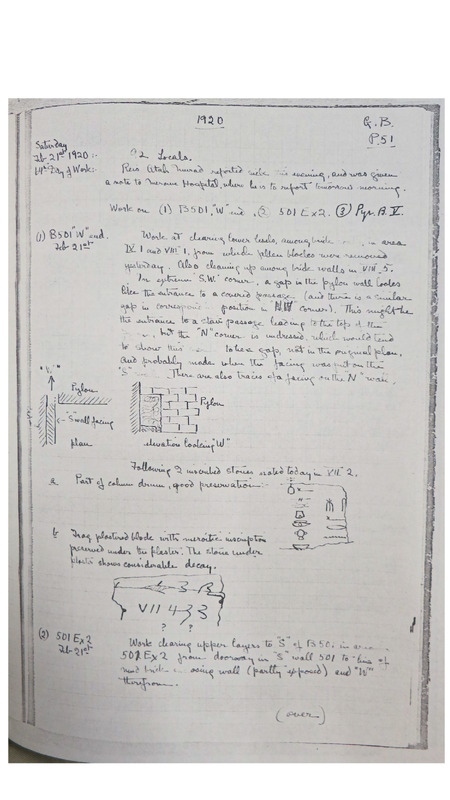 1920
G.B.
P.51
Saturday
Feb 21st 1920:-
14th Day of Work:-
32 Locals.
Reis Atah Murad reported sick this evening, and was given
a note to Merowe Hospital, where he is to report tomorrow morning.
Work on (1) B501, "W" end, (2) 501 Ex 2. (3) Pyr. B. V.
(1) B501 "W" end.
Feb 21st
Work at clearing lower levels, among brick in area
IX 1 and VIII 1, from which fallen blocks were removed
yesterday. Also cleaning up among brick walls in VIII 5.
In extreme S.W. corner, a gap in the pylon wall looks
like the entrance to a covered passage (and there is a similar
gap in corresponding position in N.W. corner). This might be
the entrance to a stair passage leading to the top of the
but the "N" corner is undressed, which would tend
to show this to be a gap, not in the original plan,
and probably made when the facing was put on the
"S" There are also traces of a facing on the N" wall.
Pylon
"S" wall facing
plan
Pylon
elevation looking "W"
Following 2 inscribed stones noted today in "VII" 2.
a Part of column drum, good preservation:-
b Frag plastered block with meroitic inscription
preserved under the plaster. The stone under
plaster shows considerable decay.
VII 4 3 3
? ?
(2) 501 Ex 2
Feb 21st
Work clearing upper layers to "S" of B501 in area
501 Ex 2 from doorway in "S" wall 501 to line of
mud brick wall (partly exposed) and "W"
therefrom.
(over)